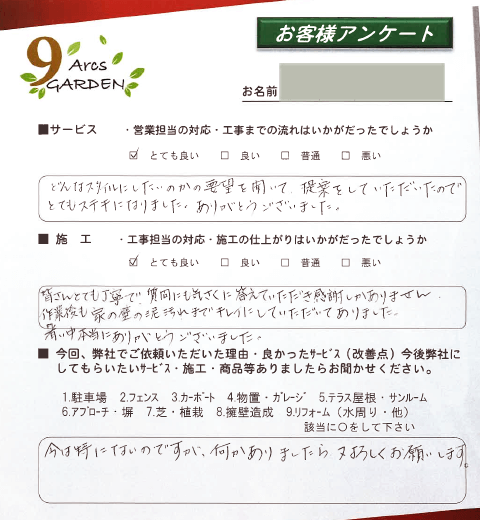 9 Arcs
GARDEN
お客様アンケート
お名前
■サービス ・営業担当の対応・工事までの流れはいかがだったでしょうか
☑ とても良い □ 良い □ 普通 □ 悪い
どんなスタイルにしたいのかの要望を聞いて、提案をしていただいたので
とてもステキになりました。ありがとうございました。
■ 施 工 ・工事担当の対応・施工の仕上がりはいかがだったでしょうか
☑ とても良い □ 良い □ 普通 □ 悪い
皆さんとても丁寧で、質問にも気さくに答えていただき感謝しかありません。
作業後も家の壁の泥汚れまでキレイにしていただいてありました。
暑い中本当にありがとうございました。
■ 今回、弊社でご依頼いただいた理由・良かったｻｰﾋﾞｽ（改善点）今後弊社に
してもらいたいｻｰﾋﾞｽ・施工・商品等ありましたらお聞かせください。
1.駐車場 2.ﾌｪﾝｽ 3.ｶｰﾎﾟｰﾄ 4.物置・ｶﾞﾚｰｼﾞ 5.ﾃﾗｽ屋根・ｻﾝﾙｰﾑ
6.ｱﾌﾟﾛｰﾁ・塀 7.芝・植栽 8.擁壁造成 9.ﾘﾌｫｰﾑ（水周り・他）
該当に○をして下さい
今は特にないのですが、何かありましたら又よろしくお願いします。